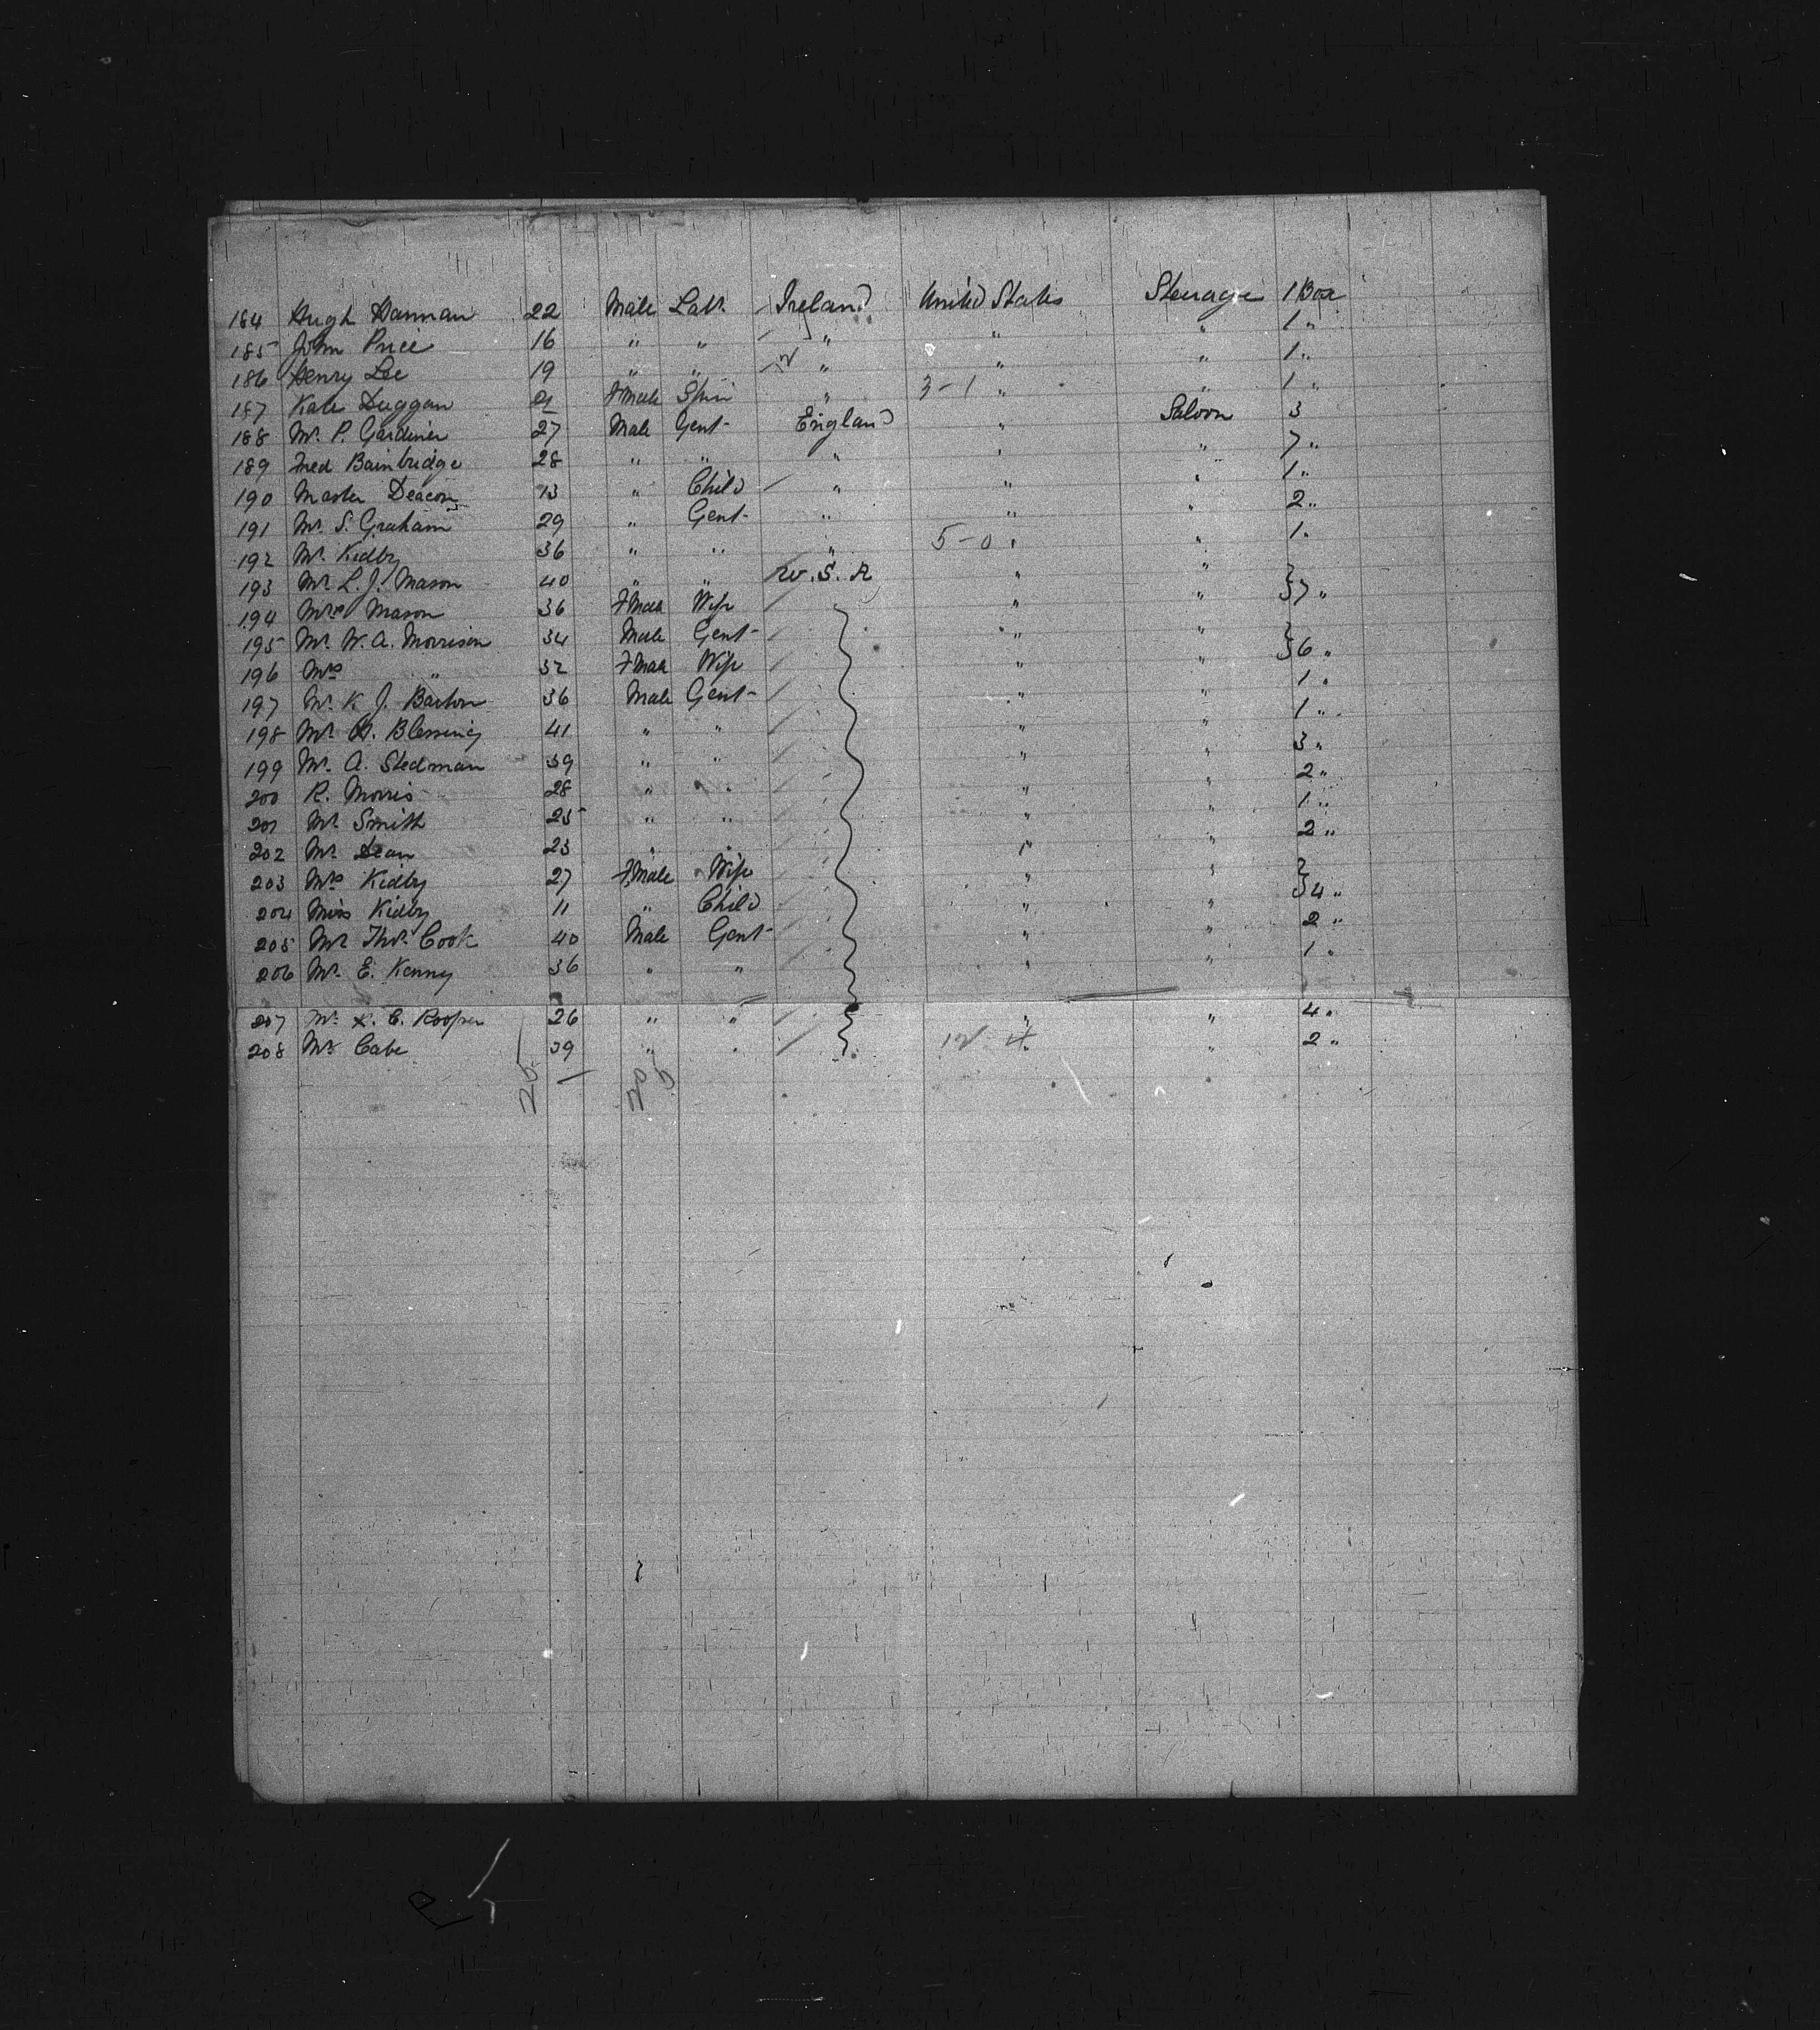 184 Hugh Hannan 22 Male Labr. Ireland United States Steerage 1 Box
185 John Price 16 " " " " " 1 "
186 Henry Lee 19 " " " " " 1 "
187 Kate Duggan 21 F Male Spin " 3-1 " " 1 "
188 Mr. P. Gardiner 27 Male Gent England " Saloon 3
189 Fred Bainbridge 28 " " " " " 7 "
190 Master Deacon 13 " Child " " " 1 "
191 Mr. S. Graham 29 " Gent " " " 2 "
192 Mr. Kidby 36 " " " 5-0 " " 1 "
193 Mr. L. J. Mason 40 " " U.S.A " "
194 Mrs Mason 36 F Male Wife " " } 7 "
195 Mr. W. A. Morrison 34 Male Gent " "
196 Mrs " 32 F Male Wife " " } 6 "
197 Mr. K J. Barton 36 Male Gent " " 1 "
198 Mr. H. Blessing 41 " " " " 1 "
199 Mr. A. Stedman 39 " " " " 3 "
200 R. Morris 28 " " " " 2 "
201 Mr. Smith 25 " " " " 1 "
202 Mr. Dean 23 " " " " 2 "
203 Mrs Kidby 27 F Male Wife " "
204 Miss Kidby 11 " Child " " } 4 "
205 Mr. Thos. Cook 40 Male Gent " " 2 "
206 Mr. E. Kenny 36 " " " " 1 "
207 Mr. C. Rooper 26 " " " " 4 "
208 Mr. Cabe 39 " " 12 4 " 2 "
25
20
5